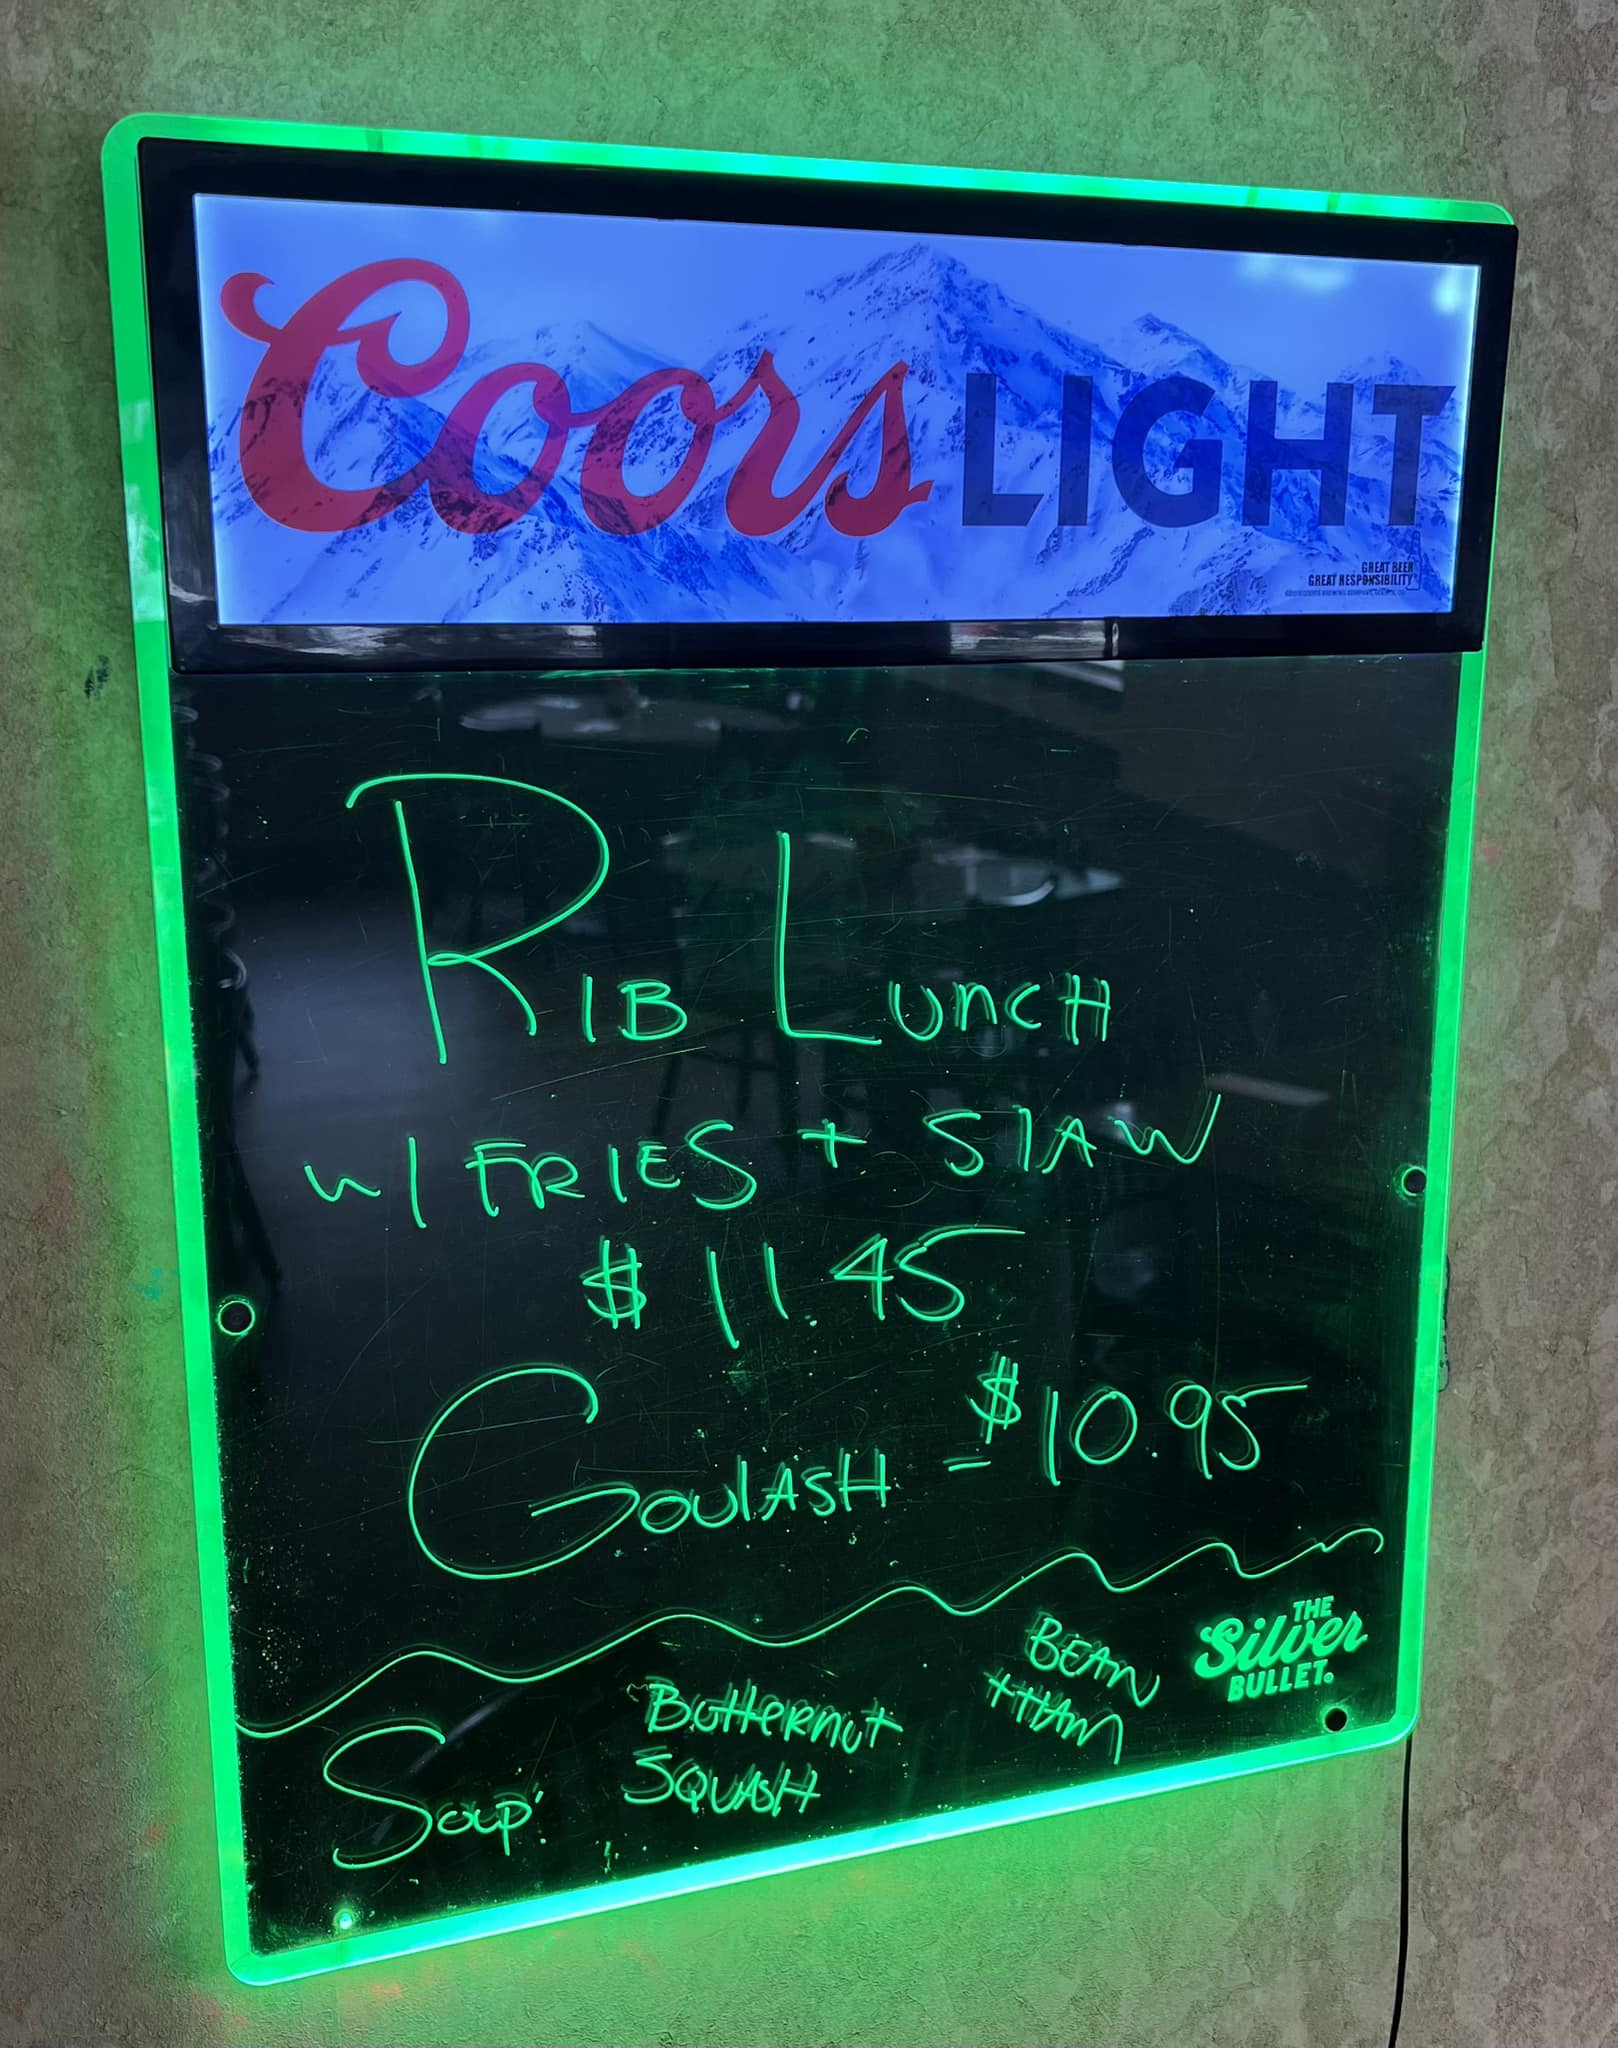 Coors LIGHT
GREAT BEER
GREAT RESPONSIBILITY
RIB LUNCH
w/ FRIES + SlAW
$11.45
GOUlASH - $10.95
SOUP:
ButteRnut
SQUASH
BEAN
+ HAM
THE
Silver
BULLET.